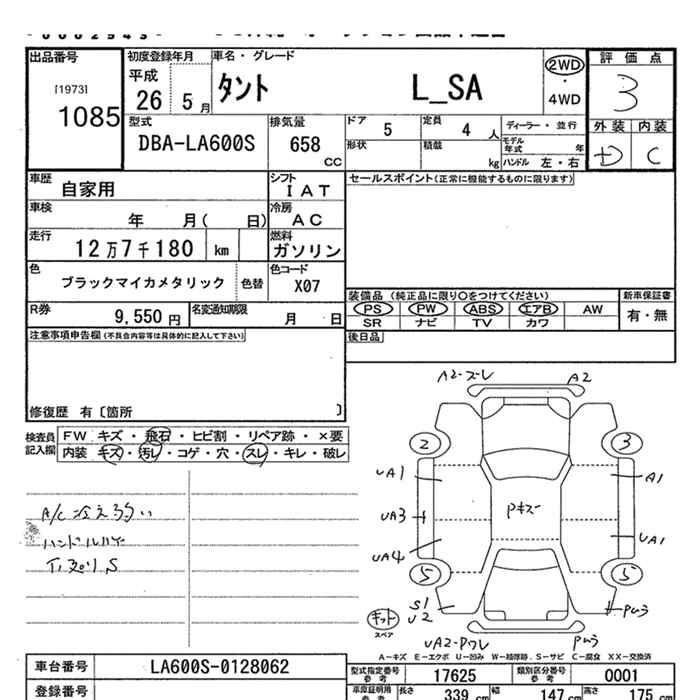 出品番号
[1973]
1085
初度登録年月
平成
26 5月
車名・グレード
タント L_SA
2WD
・
4WD
評価点
3
外装 内装
D C
型式
DBA-LA600S
排気量
658 CC
ドア 5
定員 4 人
ディーラー・並行
形状
積載 kg
モデル年式 年
ハンドル 左・右
車歴 自家用
シフト IAT
セールスポイント(正常に機能するものに限ります)
車検 年 月( 日)
冷房 AC
走行 12万7千180 km
燃料 ガソリン
色 ブラックマイカメタリック 色替
色コード X07
装備品 (純正品に限り○をつけてください)
新車保証書
PS PW ABS エアB AW
有・無
SR ナビ TV カワ
R券 9,550円
名変通知期限 月 日
後日品
注意事項申告欄(不具合内容等は具体的に記入して下さい)
修復歴 有〔箇所 〕
検査員記入欄
FW キズ・飛石・ヒビ割・リペア跡・×要
内装 キズ・汚レ・コゲ・穴・スレ・キレ・破レ
A/C冷え弱い
ハンドル
下廻りS
A2-ズレ A2
2 3
UA1 A1
UA3
Pキズ
UA4 UA1
5 5
S1
U2
キット
スペア
UA2-Pワレ
A-キズ E-エクボ U-凹み W-補修跡 S-サビ C-腐食 XX-交換済
車台番号 LA600S-0128062
型式指定番号 参考 17625
類別区分番号 参考 0001
登録番号
車庫証明用 参考
長さ 339 cm
幅 147 cm
高さ 175 cm